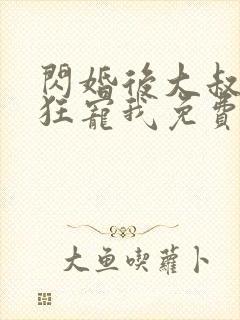 閃婚後大叔
狂寵我免費
大魚喫蘿卜